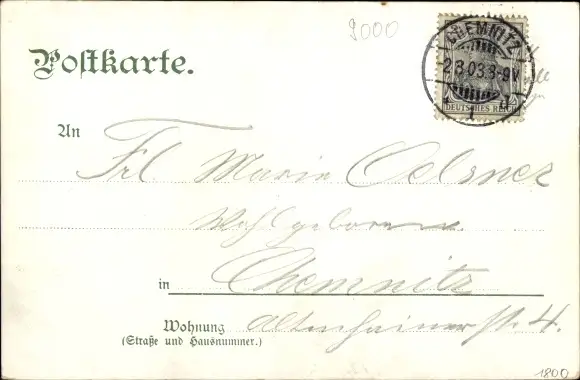 9000
CHEMNITZ
2.3.03.8-9V
1
DEUTSCHES REICH
Postkarte.
An
Frl. Marie Oelsner
Wohlgeboren.
in Chemnitz
Wohnung Altenhainerstr. 4.
(Straße und Hausnummer.)
1800